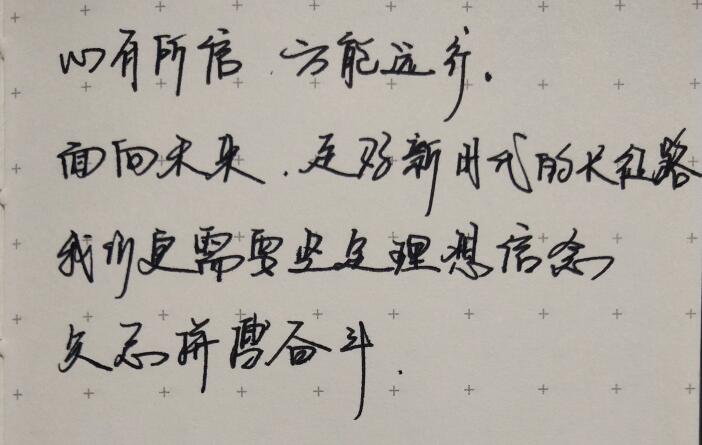 心有所信.方能远行.
面向未来.走好新时代的长征路
我们更需要坚定理想信念
矢志拼搏奋斗.